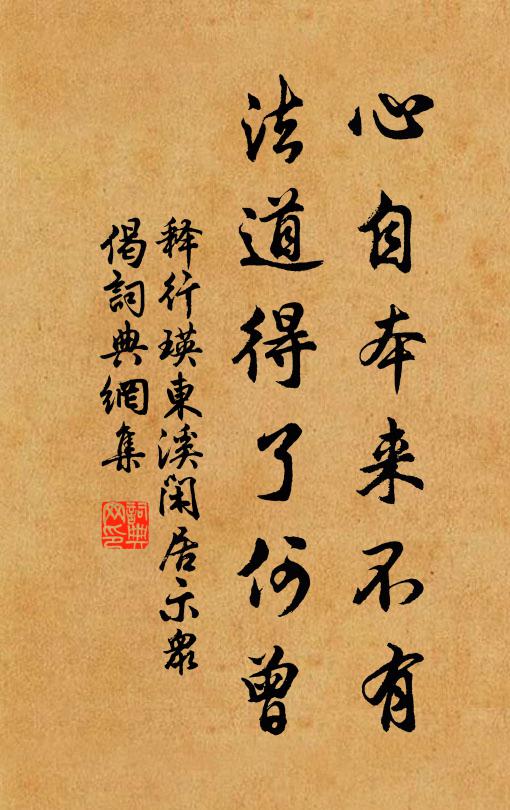 心自本来不有
法道得了何曾
释行瑛東溪闲居示衆
偈詞典網集
詞典
网印